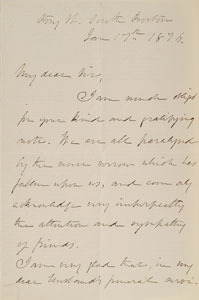 South Boston
Jan 17th 1876.
My dear Sir,
I am much obliged
for your kind and gratifying
note. We are all paralyzed
by the severe sorrow which has
fallen upon us, and can only
acknowledge very imperfectly
the attention and sympathy
of friends.
I am very glad that, in my
dear husband's funeral